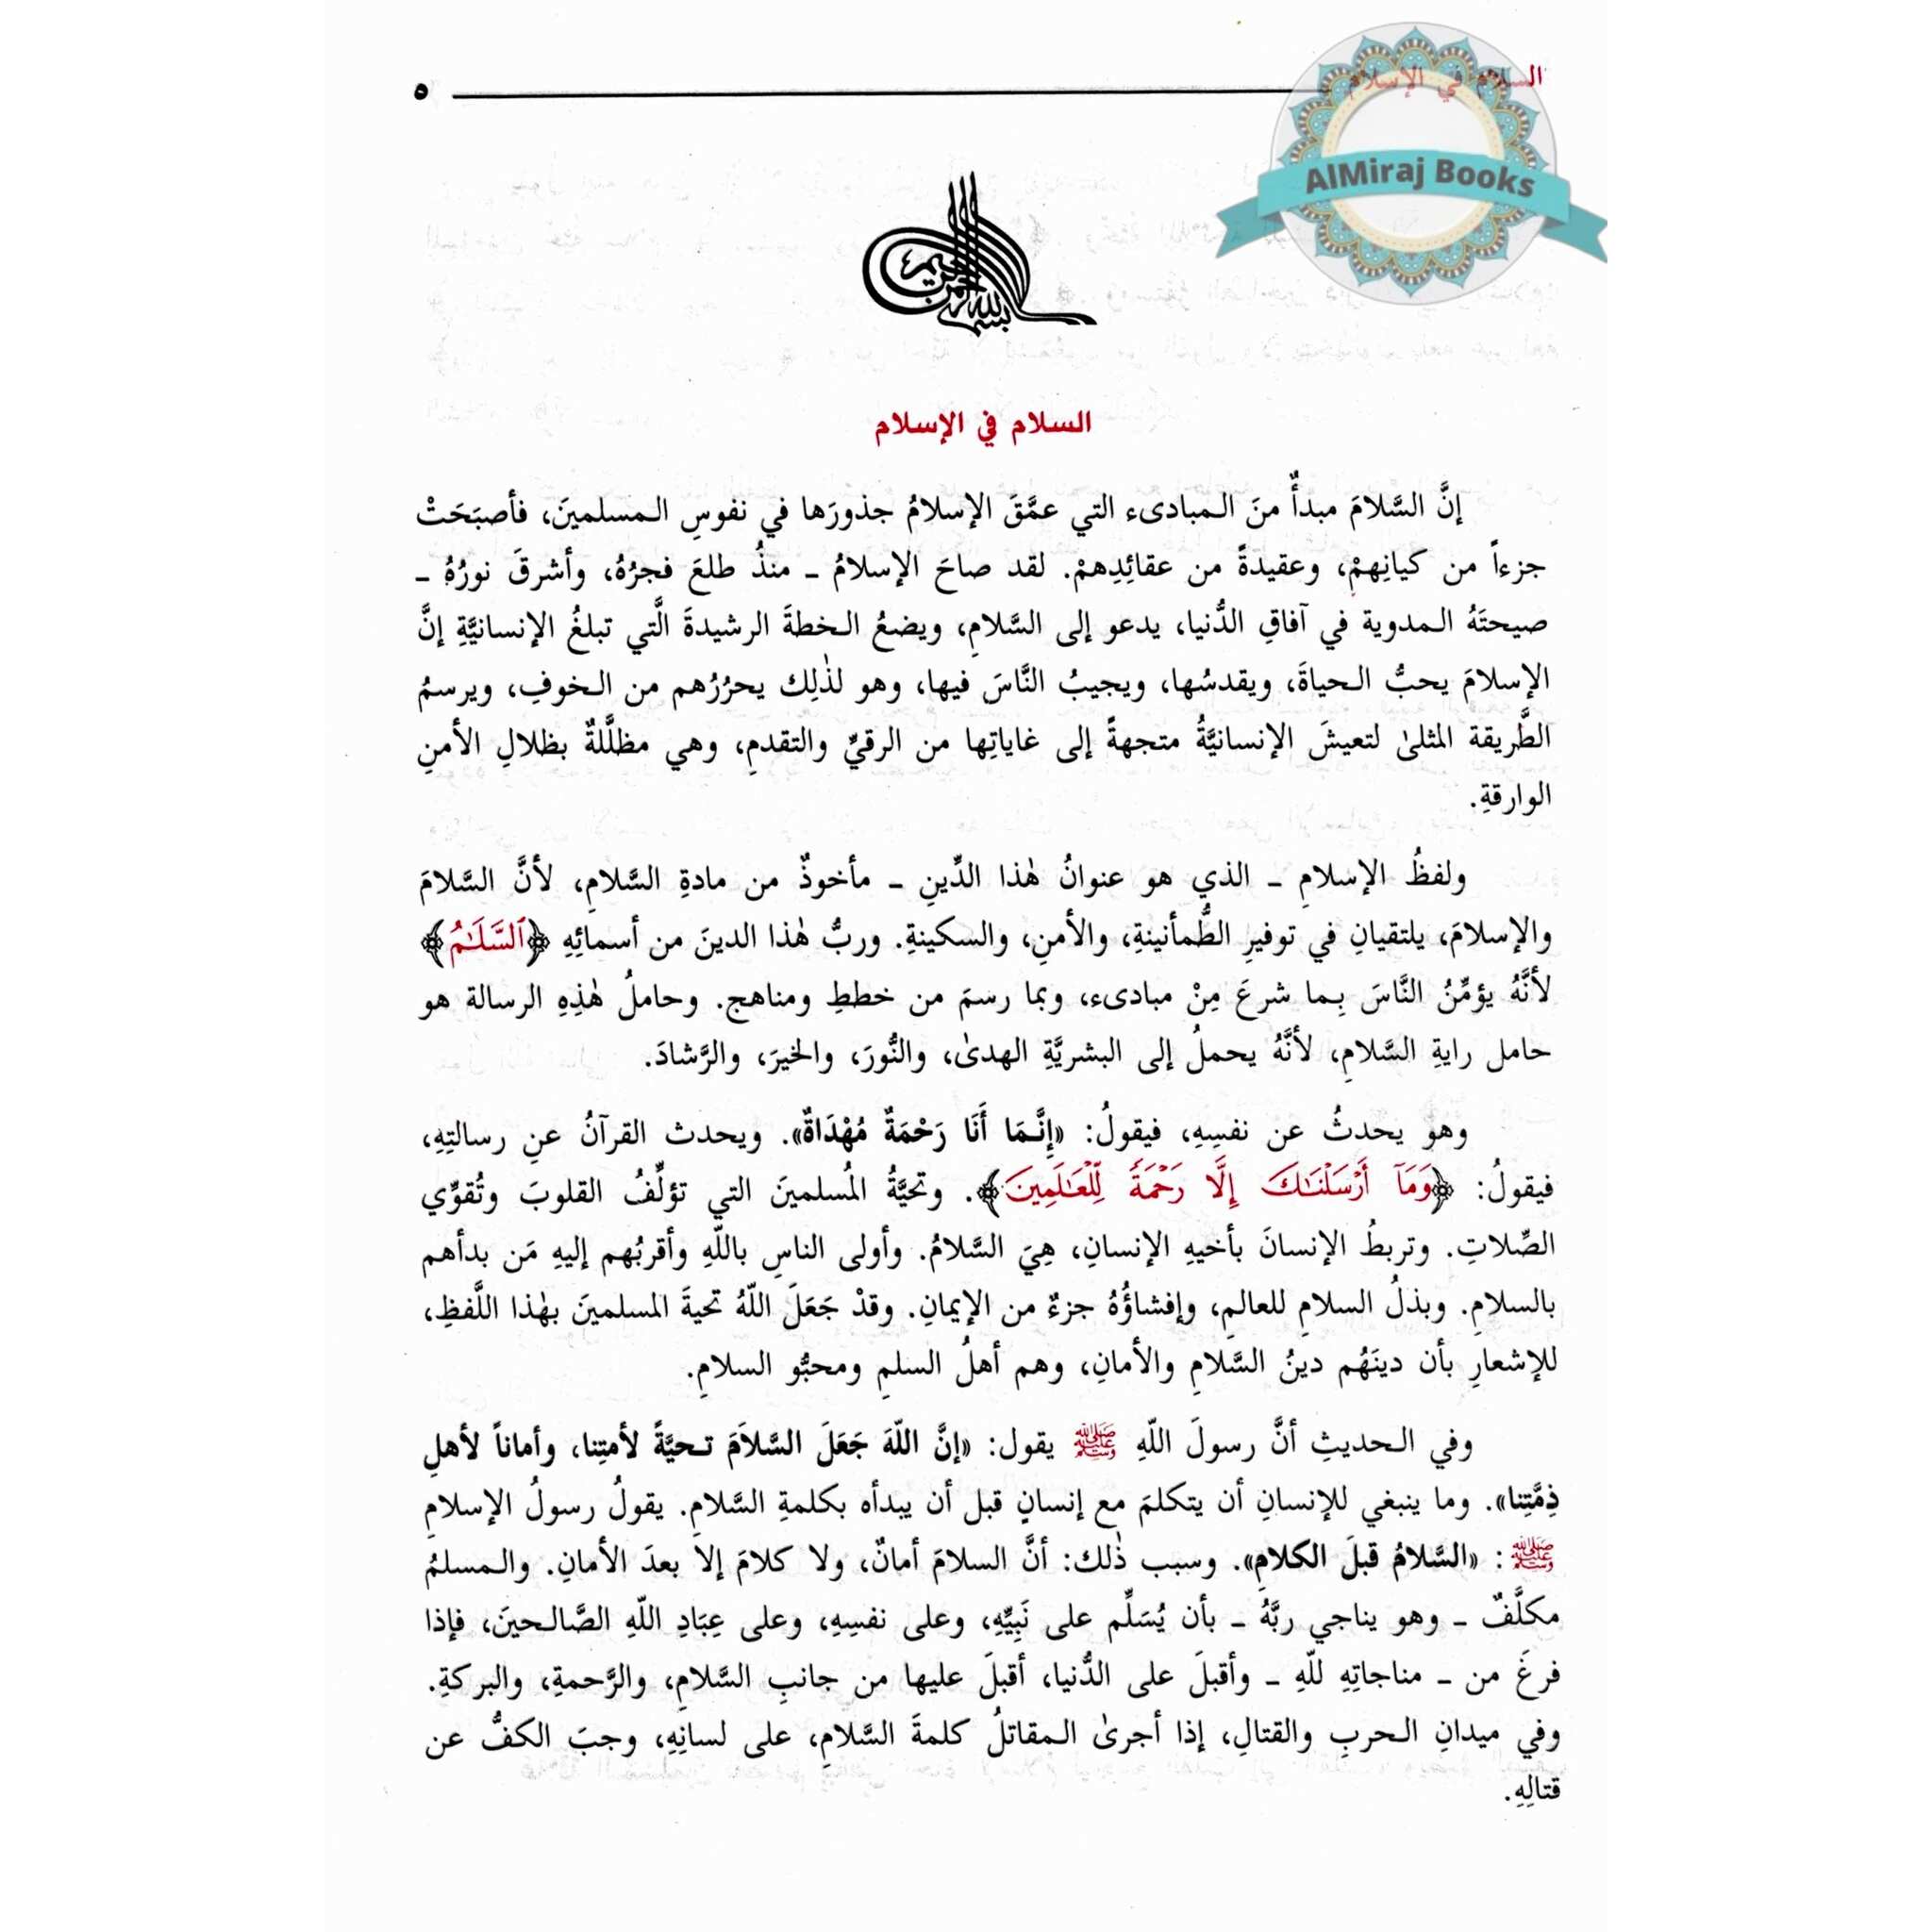 السلام في الإسلام
٥
AlMiraj Books
بسم الله الرحمن الرحيم
السلام في الإسلام
إنَّ السَّلامَ مبدأٌ منَ المبادىء التي عمَّقَ الإسلامُ جذورَها في نفوسِ المسلمينَ، فأصبَحَتْ
جزءاً من كيانِهمْ، وعقيدةً من عقائدِهمْ. لقد صاحَ الإسلامُ ـ منذُ طلعَ فجرُهُ، وأشرقَ نورُهُ ـ
صيحتَهُ المدوية في آفاقِ الدُّنيا، يدعو إلى السَّلامِ، ويضعُ الخطةَ الرشيدةَ الَّتي تبلغُ الإنسانيَّةِ إنَّ
الإسلامَ يحبُّ الحياةَ، ويقدسُها، ويجيبُ النَّاسَ فيها، وهو لذٰلِك يحررُهم من الخوفِ، ويرسمُ
الطَّريقة المثلىٰ لتعيشَ الإنسانيَّةُ متجهةً إلى غاياتِها من الرقيِّ والتقدمِ، وهي مظلَّلةٌ بظلالِ الأمنِ
الوارقةِ.
ولفظُ الإسلامِ ـ الذي هو عنوانُ هٰذا الدِّينِ ـ مأخوذٌ من مادةِ السَّلامِ، لأنَّ السَّلامَ
والإسلامَ، يلتقيانِ في توفيرِ الطُّمأنينةِ، والأمنِ، والسكينةِ. وربُّ هٰذا الدينَ من أسمائِهِ ﴿ٱلسَّلَـٰمُ﴾
لأنَّهُ يؤمِّنُ النَّاسَ بِما شرعَ مِنْ مبادىء، وبما رسمَ من خططِ ومناهج. وحاملُ هٰذِهِ الرسالة هو
حامل رايةِ السَّلامِ، لأنَّهُ يحملُ إلى البشريَّةِ الهدىٰ، والنُّورَ، والخيرَ، والرَّشادَ.
وهو يحدثُ عن نفسِهِ، فيقولُ: «إِنَّمَا أَنَا رَحْمَةٌ مُهْدَاةٌ». ويحدث القرآنُ عنِ رسالتِهِ،
فيقولُ: ﴿وَمَآ أَرْسَلْنَـٰكَ إِلَّا رَحْمَةً لِّلْعَـٰلَمِينَ﴾. وتحيَّةُ المُسلمينَ التي تؤلِّفُ القلوبَ وتُقوِّي
الصِّلاتِ. وتربطُ الإنسانَ بأخيهِ الإنسانِ، هِيَ السَّلامُ. وأولى الناسِ باللّهِ وأقربُهم إليهِ مَن بدأهم
بالسلامِ. وبذلُ السلامِ للعالمِ، وإفشاؤُهُ جزءٌ من الإيمانِ. وقدْ جَعَلَ اللّهُ تحيةَ المسلمينَ بهٰذا اللَّفظِ،
للإشعارِ بأن دينَهُم دينُ السَّلامِ والأمانِ، وهم أهلُ السلمِ ومحبُّو السلامِ.
وفي الحديثِ أنَّ رسولَ اللّهِ ﷺ يقول: «إنَّ اللّهَ جَعَلَ السَّلاَمَ تحيَّةً لأمتِنا، وأماناً لأهلِ
ذِمَّتِنا». وما ينبغي للإنسانِ أن يتكلمَ مع إنسانٍ قبل أن يبدأه بكلمةِ السَّلامِ. يقولُ رسولُ الإسلامِ
ﷺ: «السَّلامُ قبلَ الكلامِ». وسبب ذٰلك: أنَّ السلامَ أمانٌ، ولا كلامَ إلاَّ بعدَ الأمانِ. والمسلمُ
مكلَّفٌ ـ وهو يناجي ربَّهُ ـ بأن يُسَلِّم على نَبِيِّهِ، وعلى نفسِهِ، وعلى عِبَادِ اللّهِ الصَّالحينَ، فإذا
فرغَ من ـ مناجاتِهِ للّهِ ـ وأقبلَ على الدُّنيا، أقبلَ عليها من جانبِ السَّلامِ، والرَّحمةِ، والبركةِ.
وفي ميدانِ الحربِ والقتالِ، إذا أجرىٰ المقاتلُ كلمةَ السَّلامِ، على لسانِهِ، وجبَ الكفُّ عن
قتالِهِ.